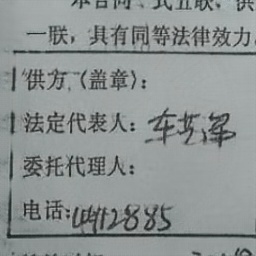 本合同一式五联，供
一联，具有同等法律效力
供方（盖章）：
法定代表人：车
委托代理人：
电话：4412885